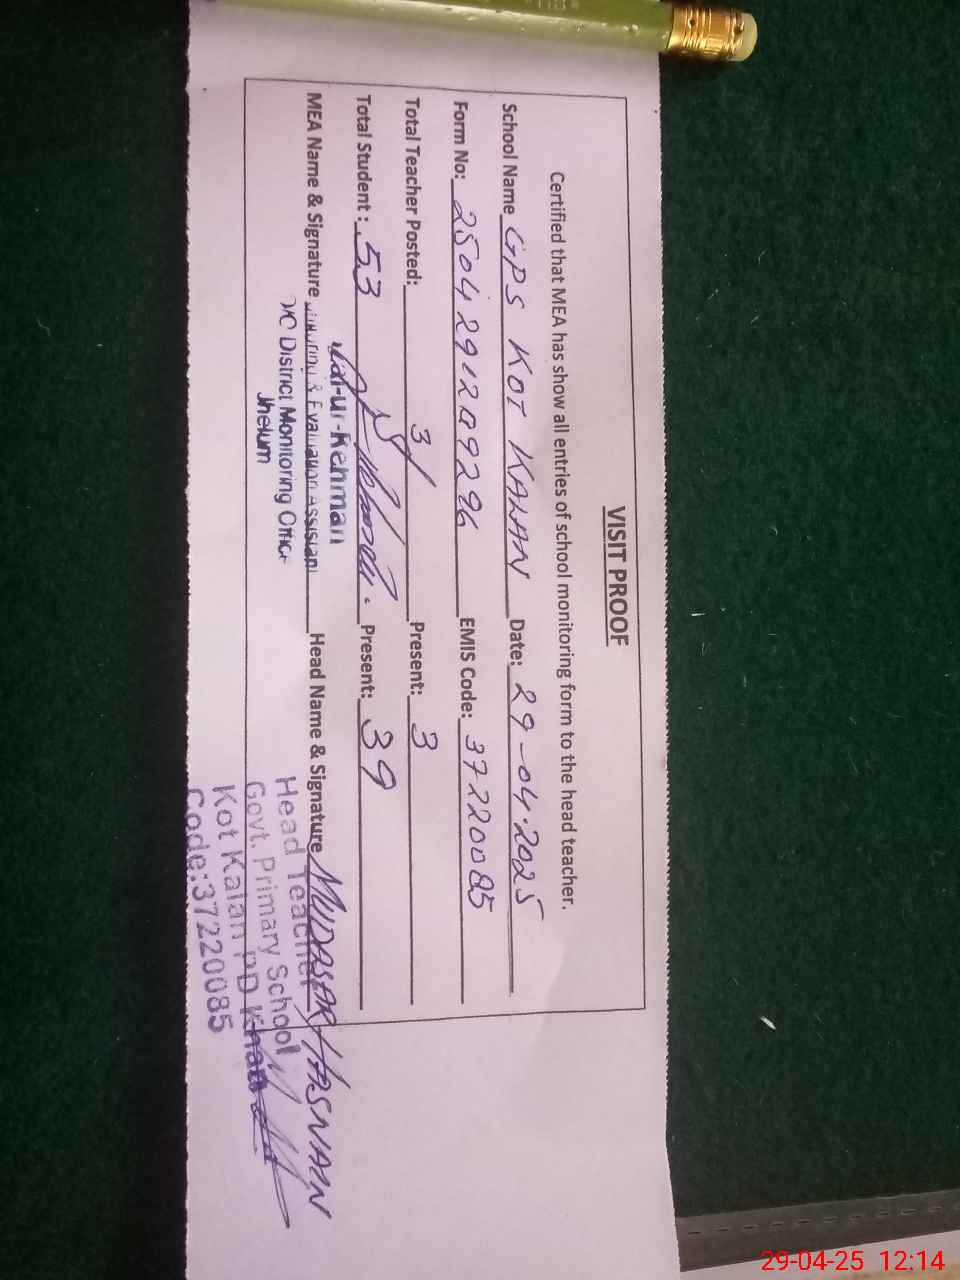 VISIT PROOF
Certified that MEA has show all entries of school monitoring form to the head teacher.
School Name GPS KOT KALAN Date: 29-04-2025
Form No: 2504291209296 EMIS Code: 37220085
Total Teacher Posted: 3 Present: 3
Total Student : 53 Present: 39
MEA Name & Signature Head Name & Signature MUDASAR HASNAIN
-ur-Rehman
& Evaluation Assistant
District Monitoring Office
Jhelum
Head Teacher
Govt. Primary School
Kot Kalan PD Khan
Code:37220085
29-04-25 12:14